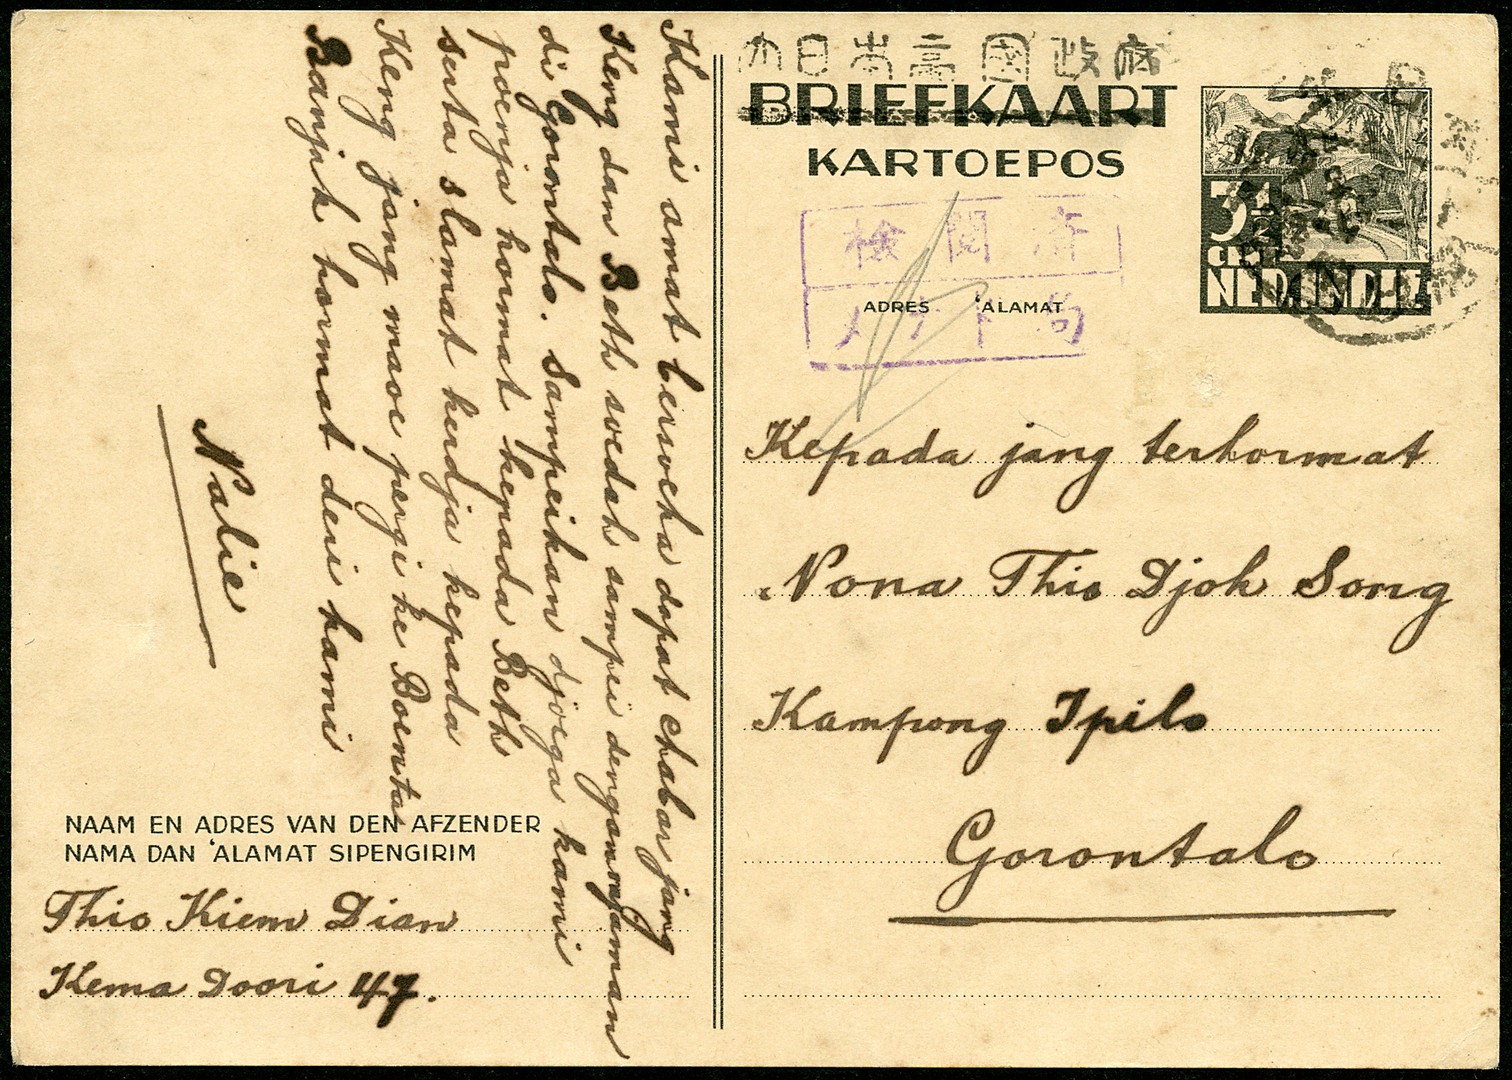 Kami amat bersoeka dapat chabar jang
Keng dan Beth soedah sampei dengan njaman
di Gorontalo. Sampeikan djoega kami
poenja hormat kepada Beth
serta slamat kerdja kepada
Keng jang maoe pergi ke Boenta
Banjak hormat deri kami
Nalie
NAAM EN ADRES VAN DEN AFZENDER
NAMA DAN 'ALAMAT SIPENGIRIM
Thio Kiem Dian
Kema Doori 47.
大日本帝國政府
BRIEFKAART
KARTOEPOS
3½
CENT
NED. INDIE
検閲済
メナド局
ADRES 'ALAMAT
Kepada jang terhormat
Nona Thio Djoh Song
Kampong Ipilo
Gorontalo